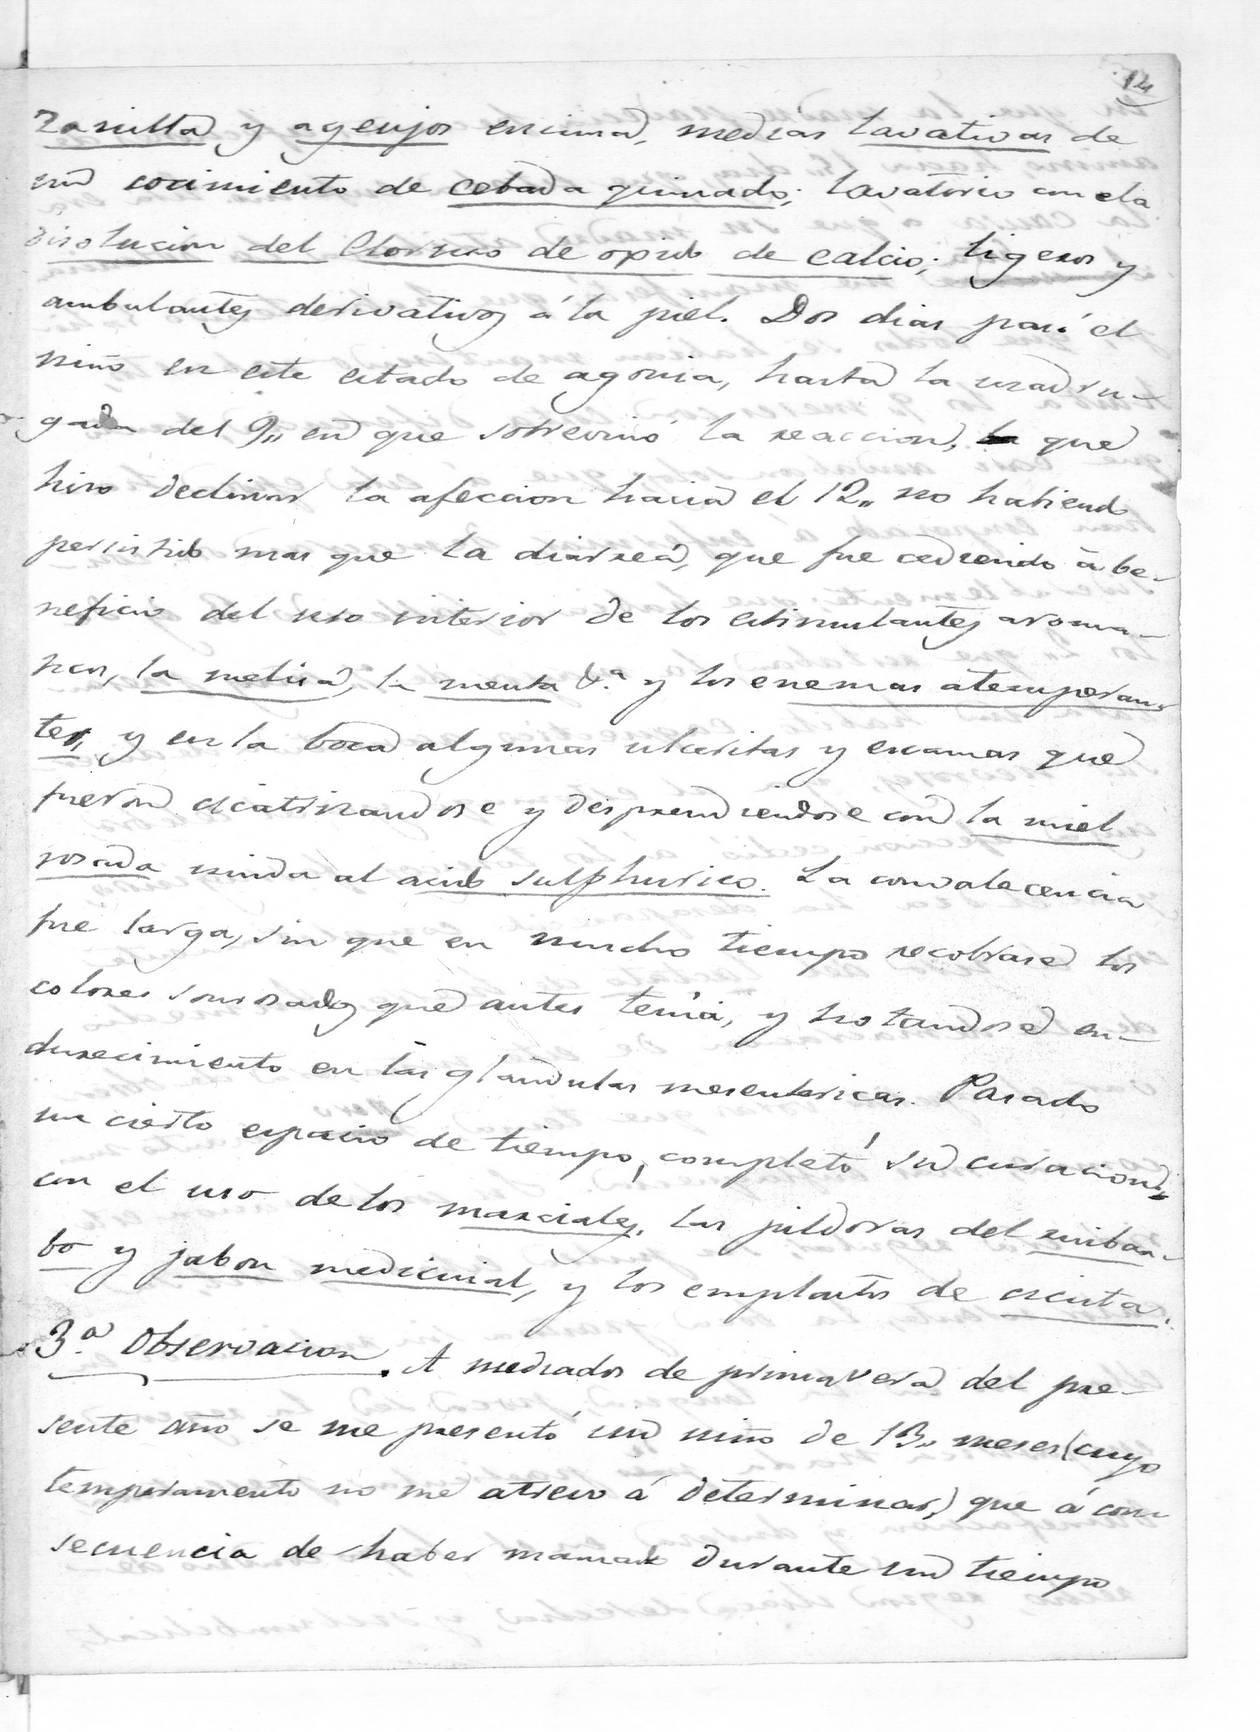 12
zanilla y agenjos encima, medias lavativas de
un cocimiento de cebada quinado; lavatorio con la
disolucion del Cloruro de opido de calcio; ligeros y
ambulantes derivativos á la piel. Dos dias pasó el
niño en este estado de agonia, hasta la madru-
gada del 9,, en que sobrevino la reaccion, que
hiso declinar la afeccion hacia el 12,, no habiendo
persistido mas que la diarrea, que fue cediendo á be-
neficio del uso interior de los estimulantes aroma-
ticos, la melisa, la menta &.ª y los enemas atemperan-
tes, y en la boca algunas ulceritas y escamas que
fueron cicatrizandose y desprendiendose con la miel
rosada unida al acido sulphurico. La convalecencia
fué larga, sin que en mucho tiempo recobrase los
colores sonrosados que antes tenia, y notandose en-
durecimiento en las glandulas mesentericas. Pasado
un cierto espacio de tiempo, completó su curacion,,
con el uso de los marciales, las pildoras del ruibar-
bo y jabon medicinal, y los emplastos de cicuta.
3.ª Observacion. A mediados de primavera del pre-
sente año se me presentó un niño de 13,, meses (cuyo
temperamento no me atrevo á determinar,) que á con
secuencia de haber mamado durante un tiempo